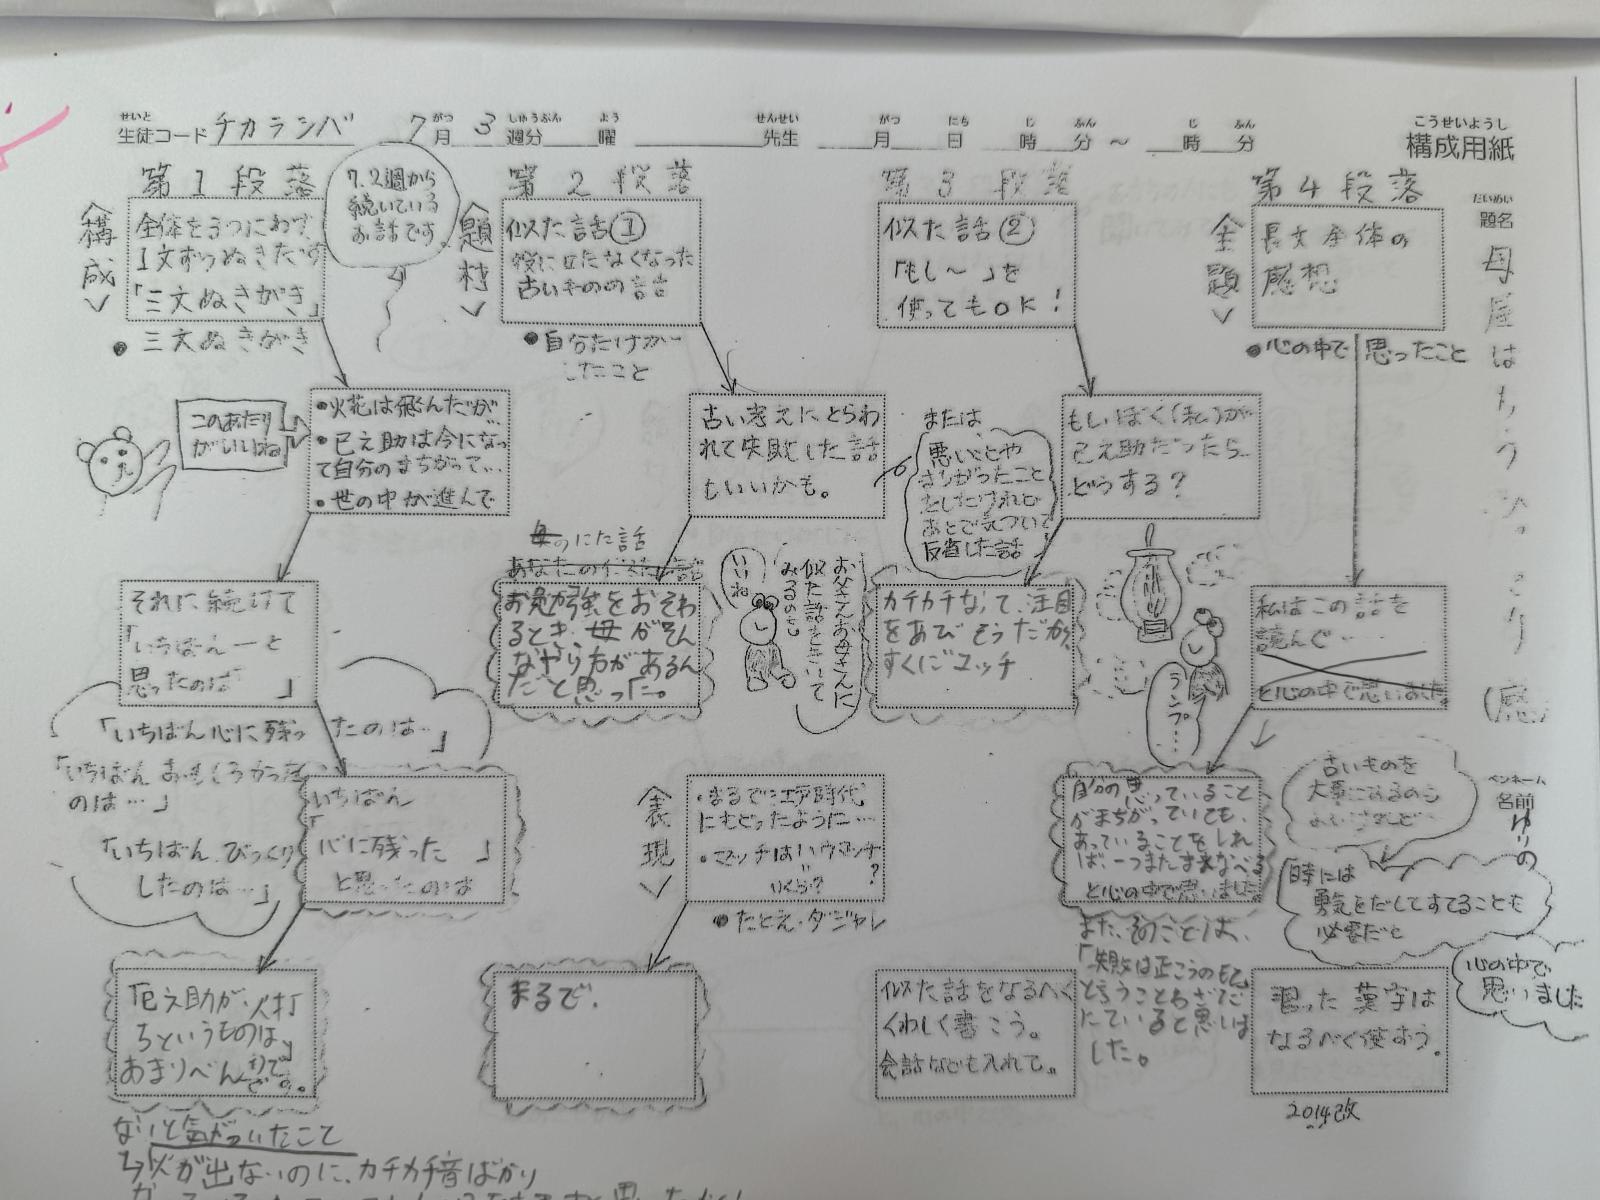 せいと がつ しゅうぶん よう せんせい がつ にち じ ふん じ ふん
生徒コード チカラシバ 7月 3週分 曜 先生 月 日 時 分 ～ 時 分
こうせいようし
構成用紙
だいめい
題名
母屋はもうひっそり(感)
ペンネーム
名前 ゆりの
第1段落
<構成>
全体を3つにわけ
1文ずつぬきだす
「三文ぬきがき」
7.2週から
続いている
お話です
●三文ぬきがき
このあたり
がいいね
・火花は飛んだが
・巳之助は今になっ
て自分のまちがって…
・世の中が進んで
それに続けて
「いちばん―と
思ったのは」
「いちばん心に残ったのは…」
「いちばんおもしろかった
のは…」
「いちばんびっくり
したのは…」
いちばん
「心に残った」
と思ったのは
「巳之助が、火打
ちというものは」
あまりべんりで
ないと気がついたこと
→火が出ないのに、カチカチ音ばかり
第2段落
<題材>
似た話①
役に立たなくなった
古いものの話
●自分だけが
したこと
古い考えにとらわ
れて失敗した話
もいいかも。
または、
悪いことや
まちがったこと
をしたけれど
あとで気づいて
反省した話
母のにた話
あなたの似た話
お勉強をおそわ
るとき、母がそん
なやり方があるん
だと思った。
いいね
お父さんお母さんに
似た話をきいて
みるのも
<表現>
・まるで江戸時代
にもどったように…
・マッチはいくマッチ?
いくら?
●たとえ・ダジャレ
まるで、
第3段落
似た話②
「もし～」を
使ってもOK!
もしぼく(私)が
巳之助だったら…
どうする?
カチカチなって、注目
をあびそうだから、
すぐにマッチ
ランプ…
似た話をなるべく
くわしく書こう。
会話なども入れて。
第4段落
<主題>
長文全体の
感想
●心の中で思ったこと
私はこの話を
読んで…
と心の中で思いました。
自分の思っていること
がまちがっていても、
あっていることをしれ
ば、一つまた学べる
と心の中で思いました。
また、そのことは、
「失敗は成こうのもと」
と言うことわざに
にていると思いま
した。
古いものを
大事にするのも
よいけれど…
時には
勇気をだしてすてることも
必要だと
心の中で
思いました
習った漢字は
なるべく使おう。
2014改